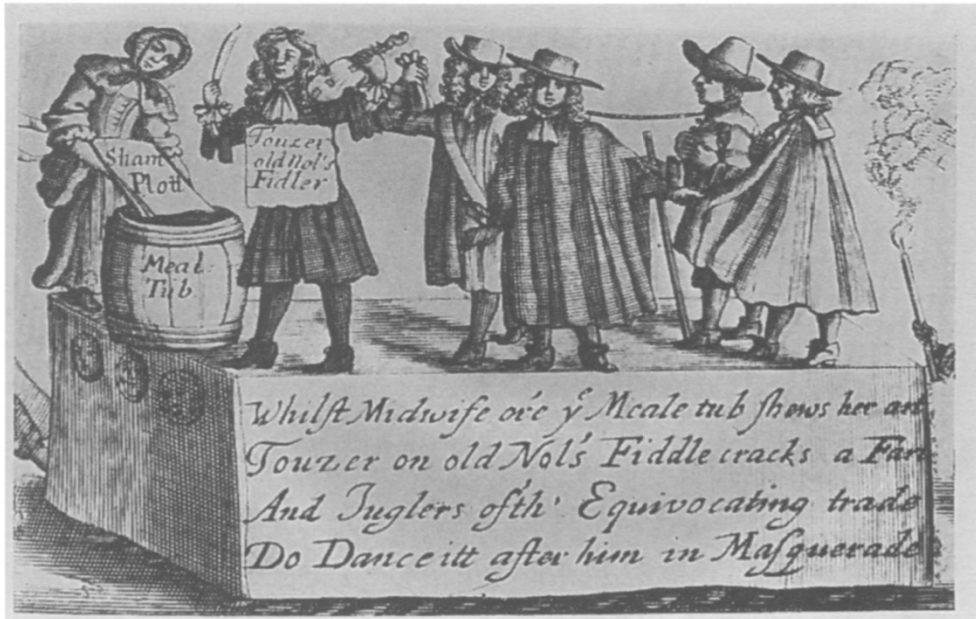 Sham
Plott
Touzer
old Nol's
Fidler
Meal
Tub
Whilſt Midwife ore yᵉ Meale tub ſhews her art,
Touzer on old Nol's Fiddle cracks a
And Juglers ofth' Equivocating trade
Do Dance itt after him in Maſquerade